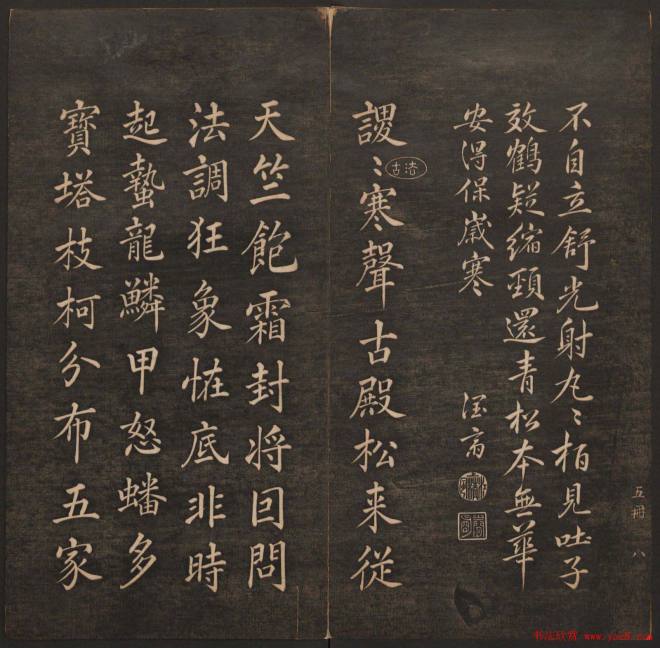 不自立舒光射九〻栢見吐子
效鶴疑縮頸還青松本無華
安得保歲寒
謖〻寒聲古殿松来從
天竺飽霜封将囙問
法調狂象恠底非時
起蟄龍鱗甲怒蟠多
寶塔枝柯分布五家
法古
五冊 八
书法欣赏